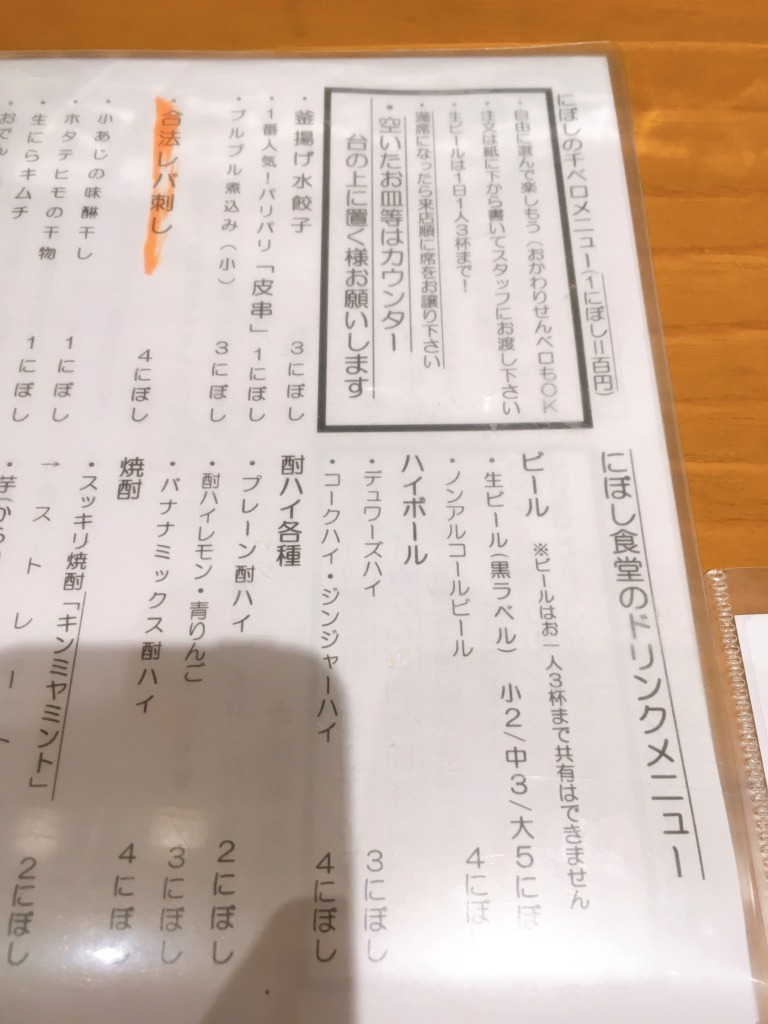 にぼしの千ベロメニュー(1にぼし=百円)
・自由に選んで楽しもう(おかわりせんべロもOK
・注文は紙に下から書いてスタッフにお渡し下さい
・生ビールは1日1人3杯まで!
・満席になったら来店順に席をお譲り下さい
・空いたお皿等はカウンター
台の上に置く様お願いします
・釜揚げ水餃子 3にぼし
・1番人気!パリパリ「皮串」 1にぼし
・プルプル煮込み(小) 3にぼし
・合法レバ刺し 4にぼし
・小あじの味醂干し
・ホタテヒモの干物 1にぼし
・生にらキムチ 1にぼし
・おでん
にぼし食堂のドリンクメニュー
ビール ※ビールはお一人3杯まで共有はできません
・生ビール(黒ラベル) 小2/中3/大5にぼ
・ノンアルコールビール 4にぼ
ハイボール
・デュワーズハイ 3にぼし
・コークハイ・ジンジャーハイ 4にぼし
酎ハイ各種
・プレーン酎ハイ 2にぼし
・酎ハイレモン・青りんご 3にぼし
・バナナミックス酎ハイ 4にぼし
焼酎
・スッキリ焼酎「キンミヤミント」
→ストレート 2にぼし
・芋(から)